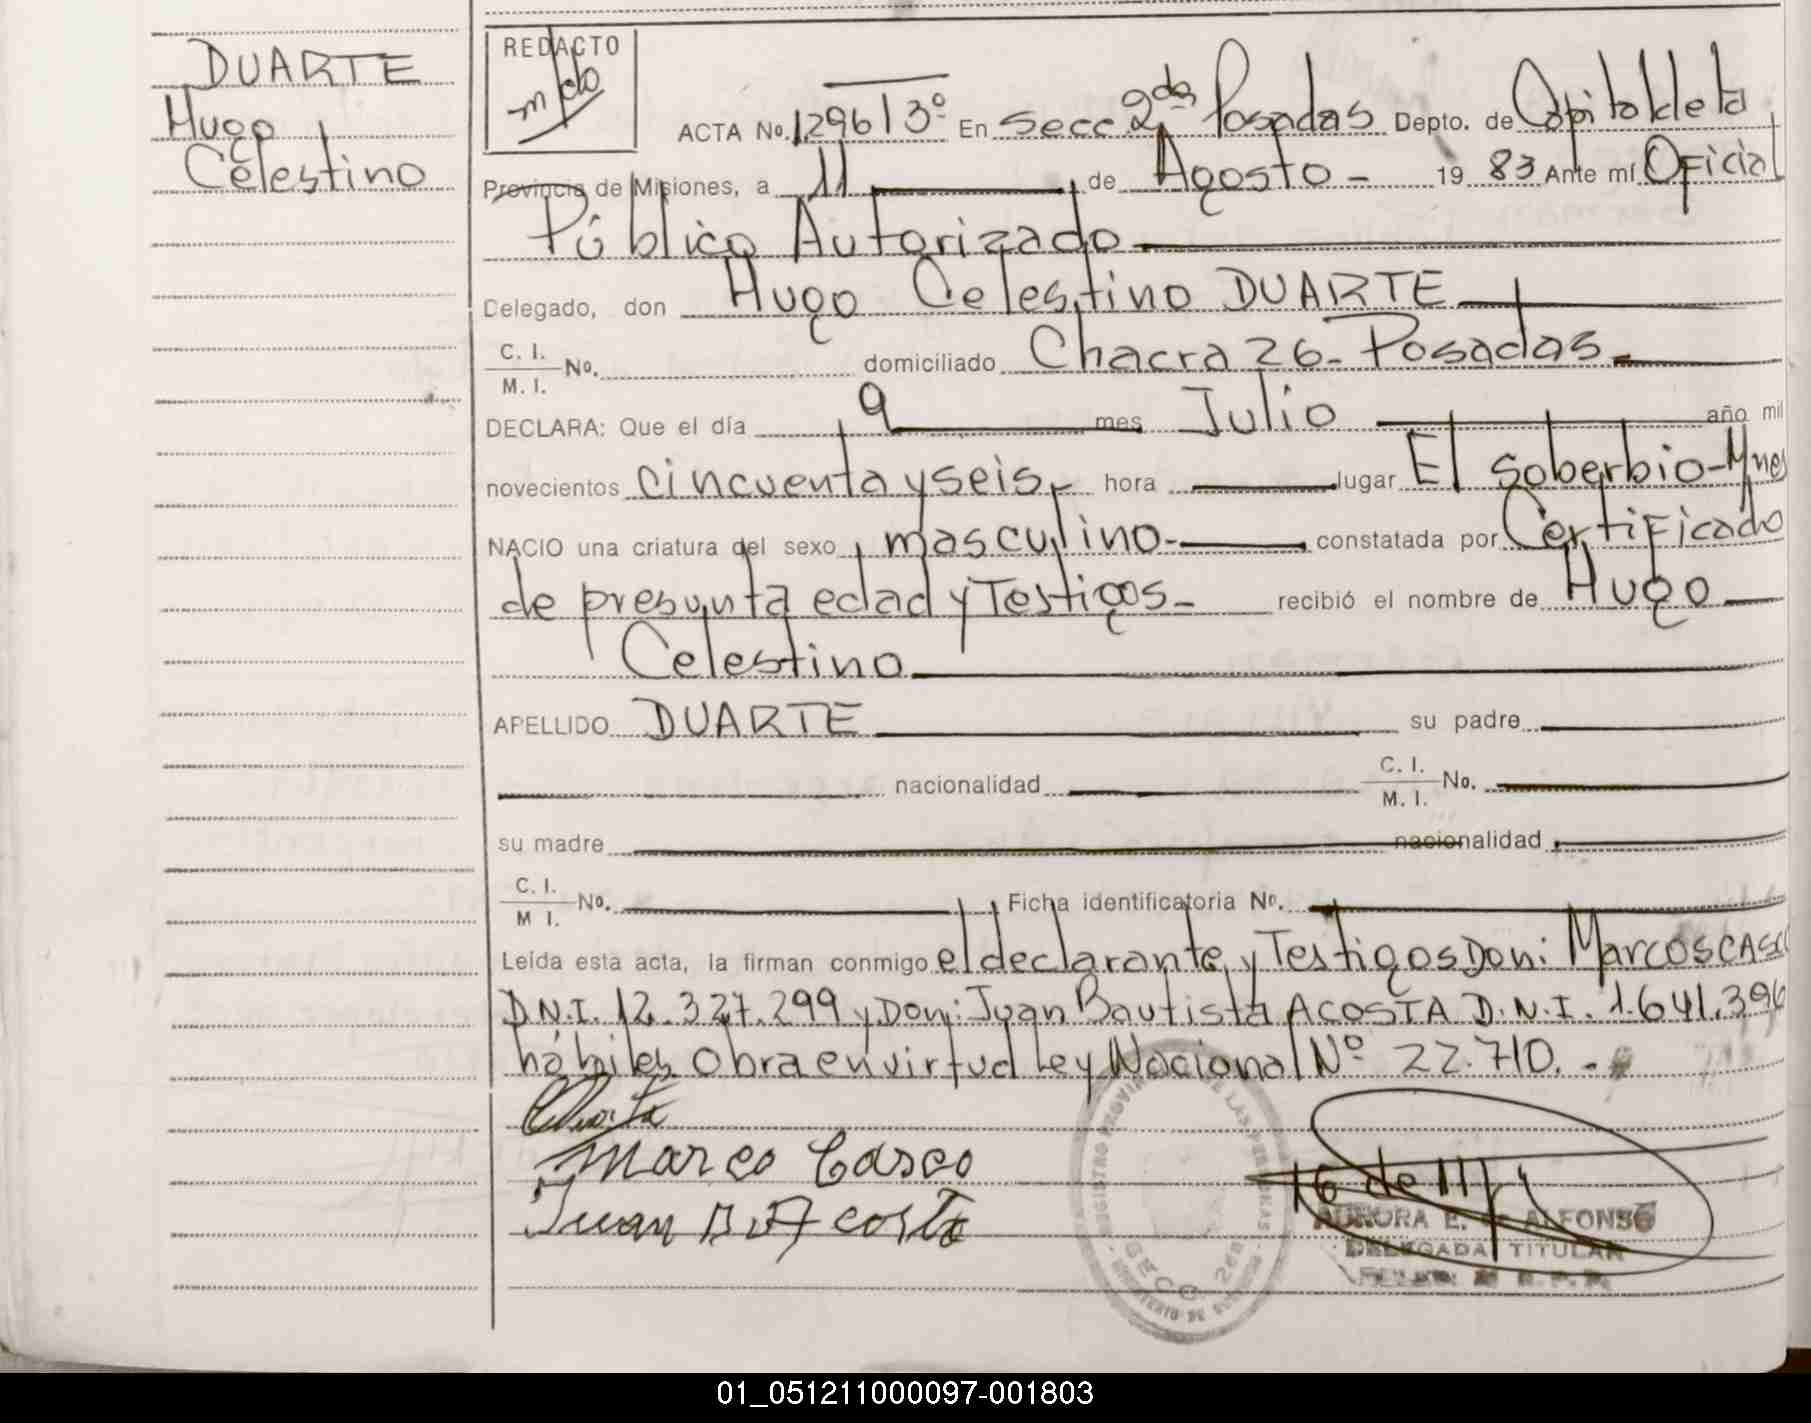 DUARTE
Hugo
Celestino
REDACTO
ACTA No. 1296 T 3º En Secc 2da Posadas Depto. de Capital de la
Provincia de Misiones, a 11 de Agosto - 19 83 Ante mí Oficial
Público Autorizado
Delegado, don Hugo Celestino DUARTE
C. I.
M. I. No. domiciliado Chacra 26 - Posadas -
DECLARA: Que el día 9 mes Julio año mil
novecientos cincuenta y seis - hora lugar El Soberbio - Mnes
NACIO una criatura del sexo masculino - constatada por Certificado
de presunta edad y Testigos - recibió el nombre de Hugo
Celestino
APELLIDO DUARTE su padre
nacionalidad C. I.
M. I. No.
su madre nacionalidad
C. I.
M I. No. Ficha identificatoria No.
Leída esta acta, la firman conmigo el declarante y Testigos Don: Marcos CASCO
D.N.I. 12.327.299 y Don: Juan Bautista ACOSTA D.N.I. 1.641.396
hábiles Obra en virtud Ley Nacional Nº 22.710. -
Marco Casco
Juan B. Acosta
AURORA E. de ALFONSO
DELEGADA TITULAR
REGISTRO PROVINCIAL DE LAS PERSONAS
SECC. 2da
MINISTERIO DE GOBIERNO
01_051211000097-001803